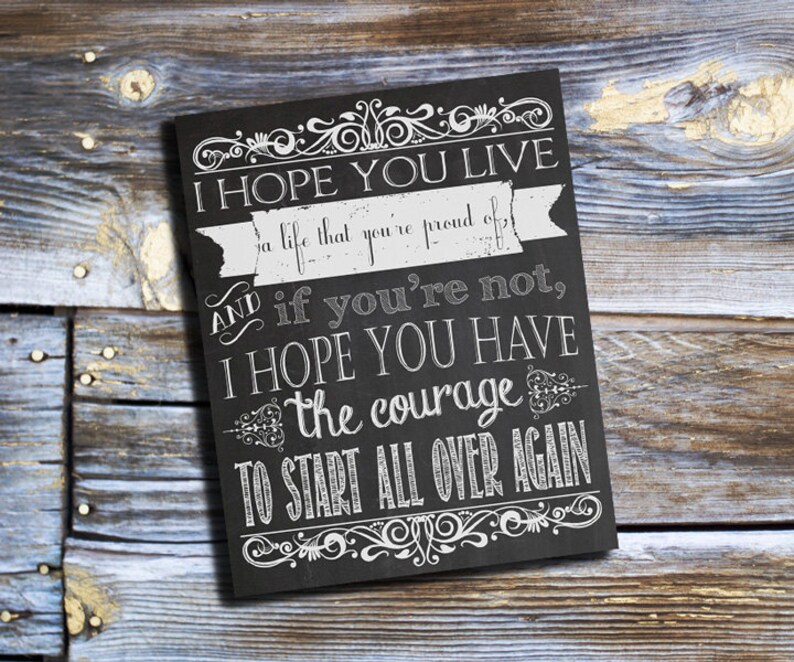 I HOPE YOU LIVE
a life that you're proud of,
AND if you're not,
I HOPE YOU HAVE
the courage
TO START ALL OVER AGAIN